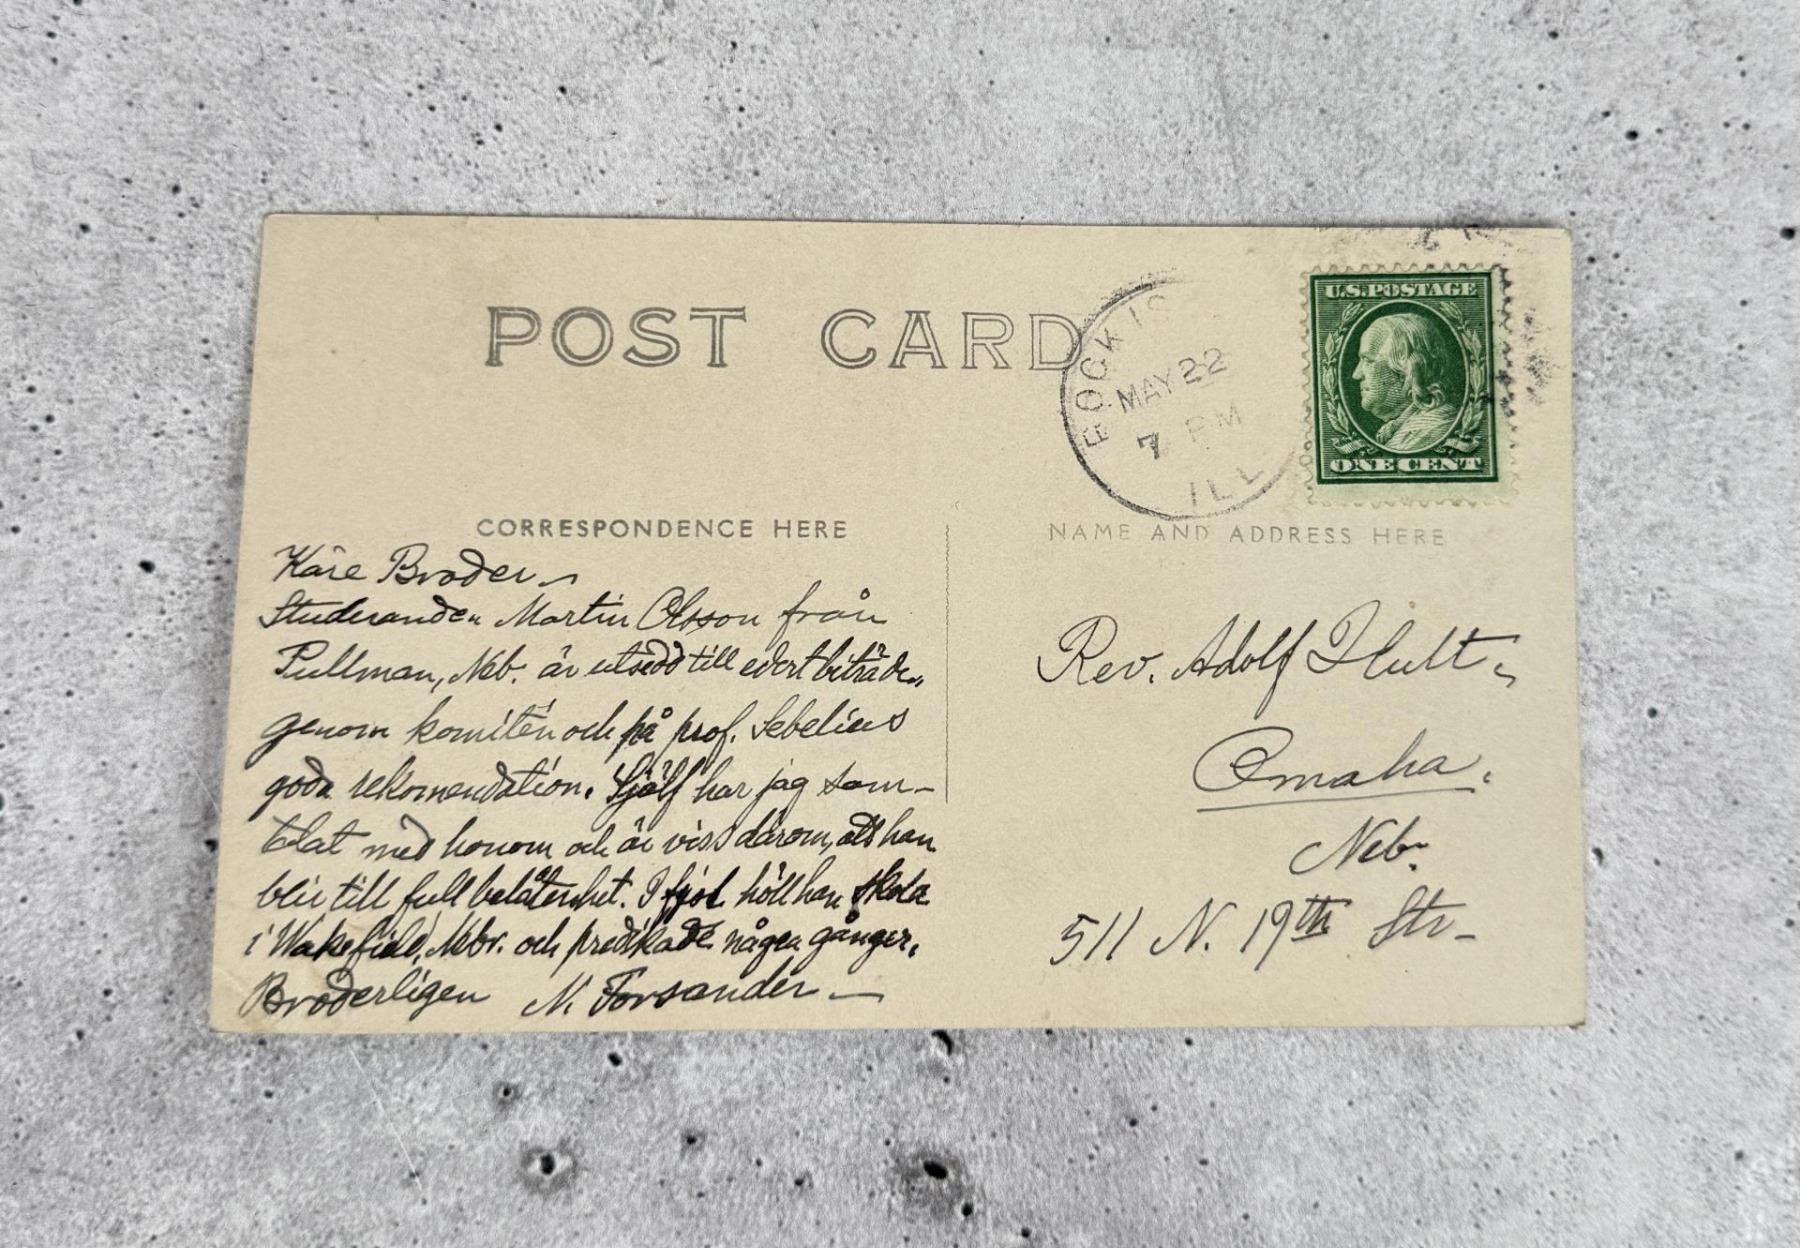 POST CARD
ROCK IS
MAY 22
7 PM
ILL
U.S. POSTAGE
ONE CENT
CORRESPONDENCE HERE
NAME AND ADDRESS HERE
Käre Broder. –
Studeranden Martin Olsson från
Pullman, Neb. är utsedd till edert biträde,
genom komitén och på prof. Sebelius
goda rekomendation. Själf har jag sam-
talat med honom och är viss därom, att han
blir till full belåtenhet. I fjol höll han skola
i Wakefield, Nebr. och predikade några gånger.
Broderligen N. Forsander –
Rev. Adolf Hult,
Omaha.
Neb.
511 N. 19th Str.